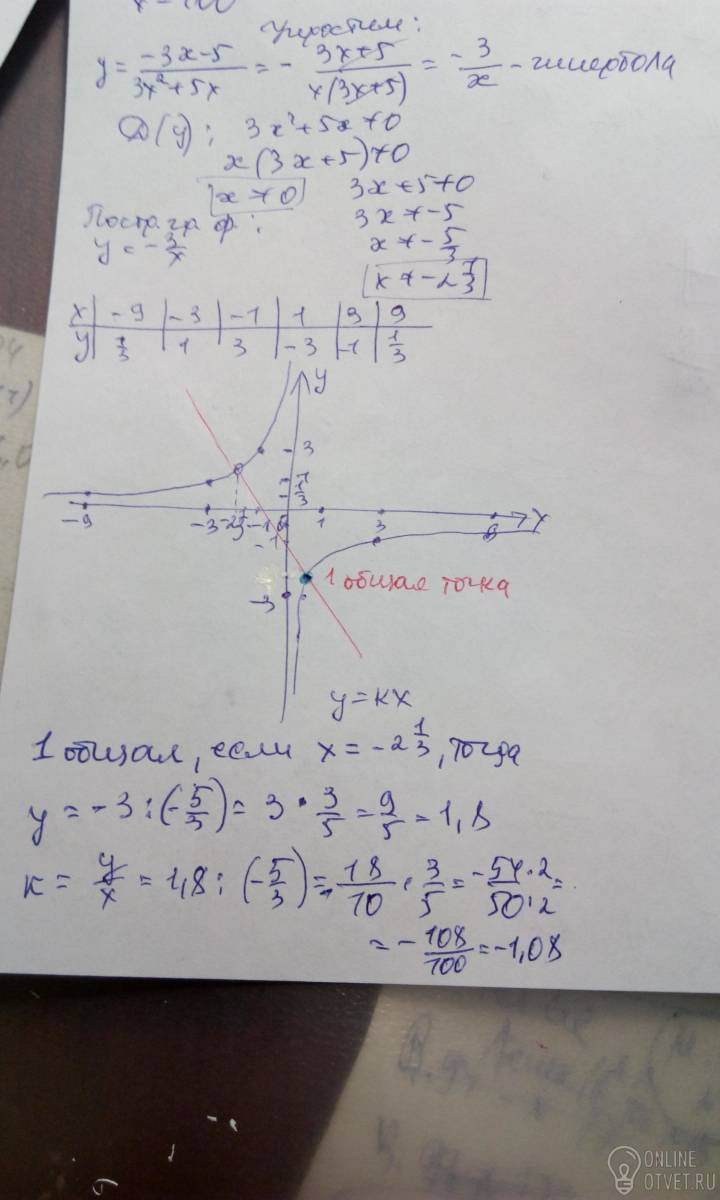 Упростим:
y = (-3x-5)/(3x²+5x) = - (3x+5)/(x(3x+5)) = - 3/x - гипербола
D(y): 3x²+5x≠0
x(3x+5)≠0
x≠0 3x+5≠0
3x≠-5
Постр. граф.: x≠-5/3
y = -3/x x≠-2 1/3
x | -9 | -3 | -1 | 1 | 3 | 9
y | 1/3 | 1 | 3 | -3 | -1 | 1/3
y
3
1
1/3
-9 -3 -2 1/3 -1 0 1 3 9 x
-1
1 общая точка
-3
y=kx
1 общая, если x = -2 1/3, тогда
y = -3 : (-5/3) = 3 · 3/5 = 9/5 = 1,8
k = y/x = 1,8 : (-5/3) = - 18/10 · 3/5 = - 54·2/50·2 =
= - 108/100 = -1,08
ONLINE
OTVET.RU